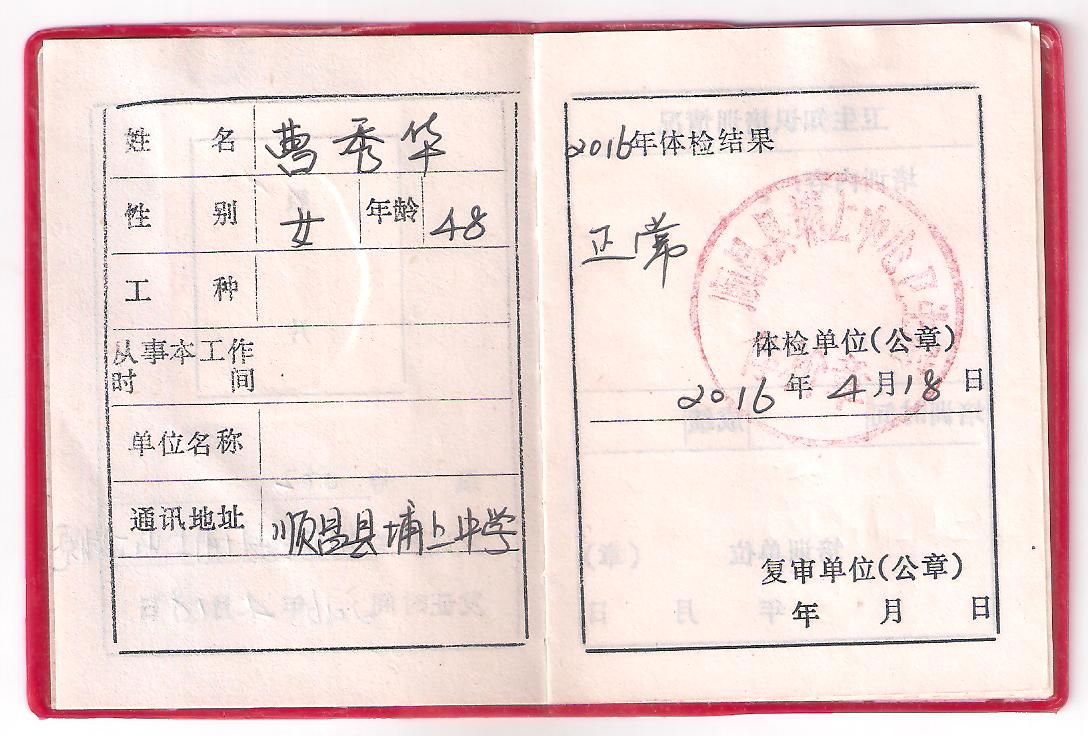 姓名 曹秀华
性别 女 年龄 48
工种
从事本工作
时间
单位名称
通讯地址 顺昌县埔上中学
2016年体检结果
正常
顺昌县埔上中心卫生
体检单位(公章)
2016年4月18日
复审单位(公章)
年 月 日